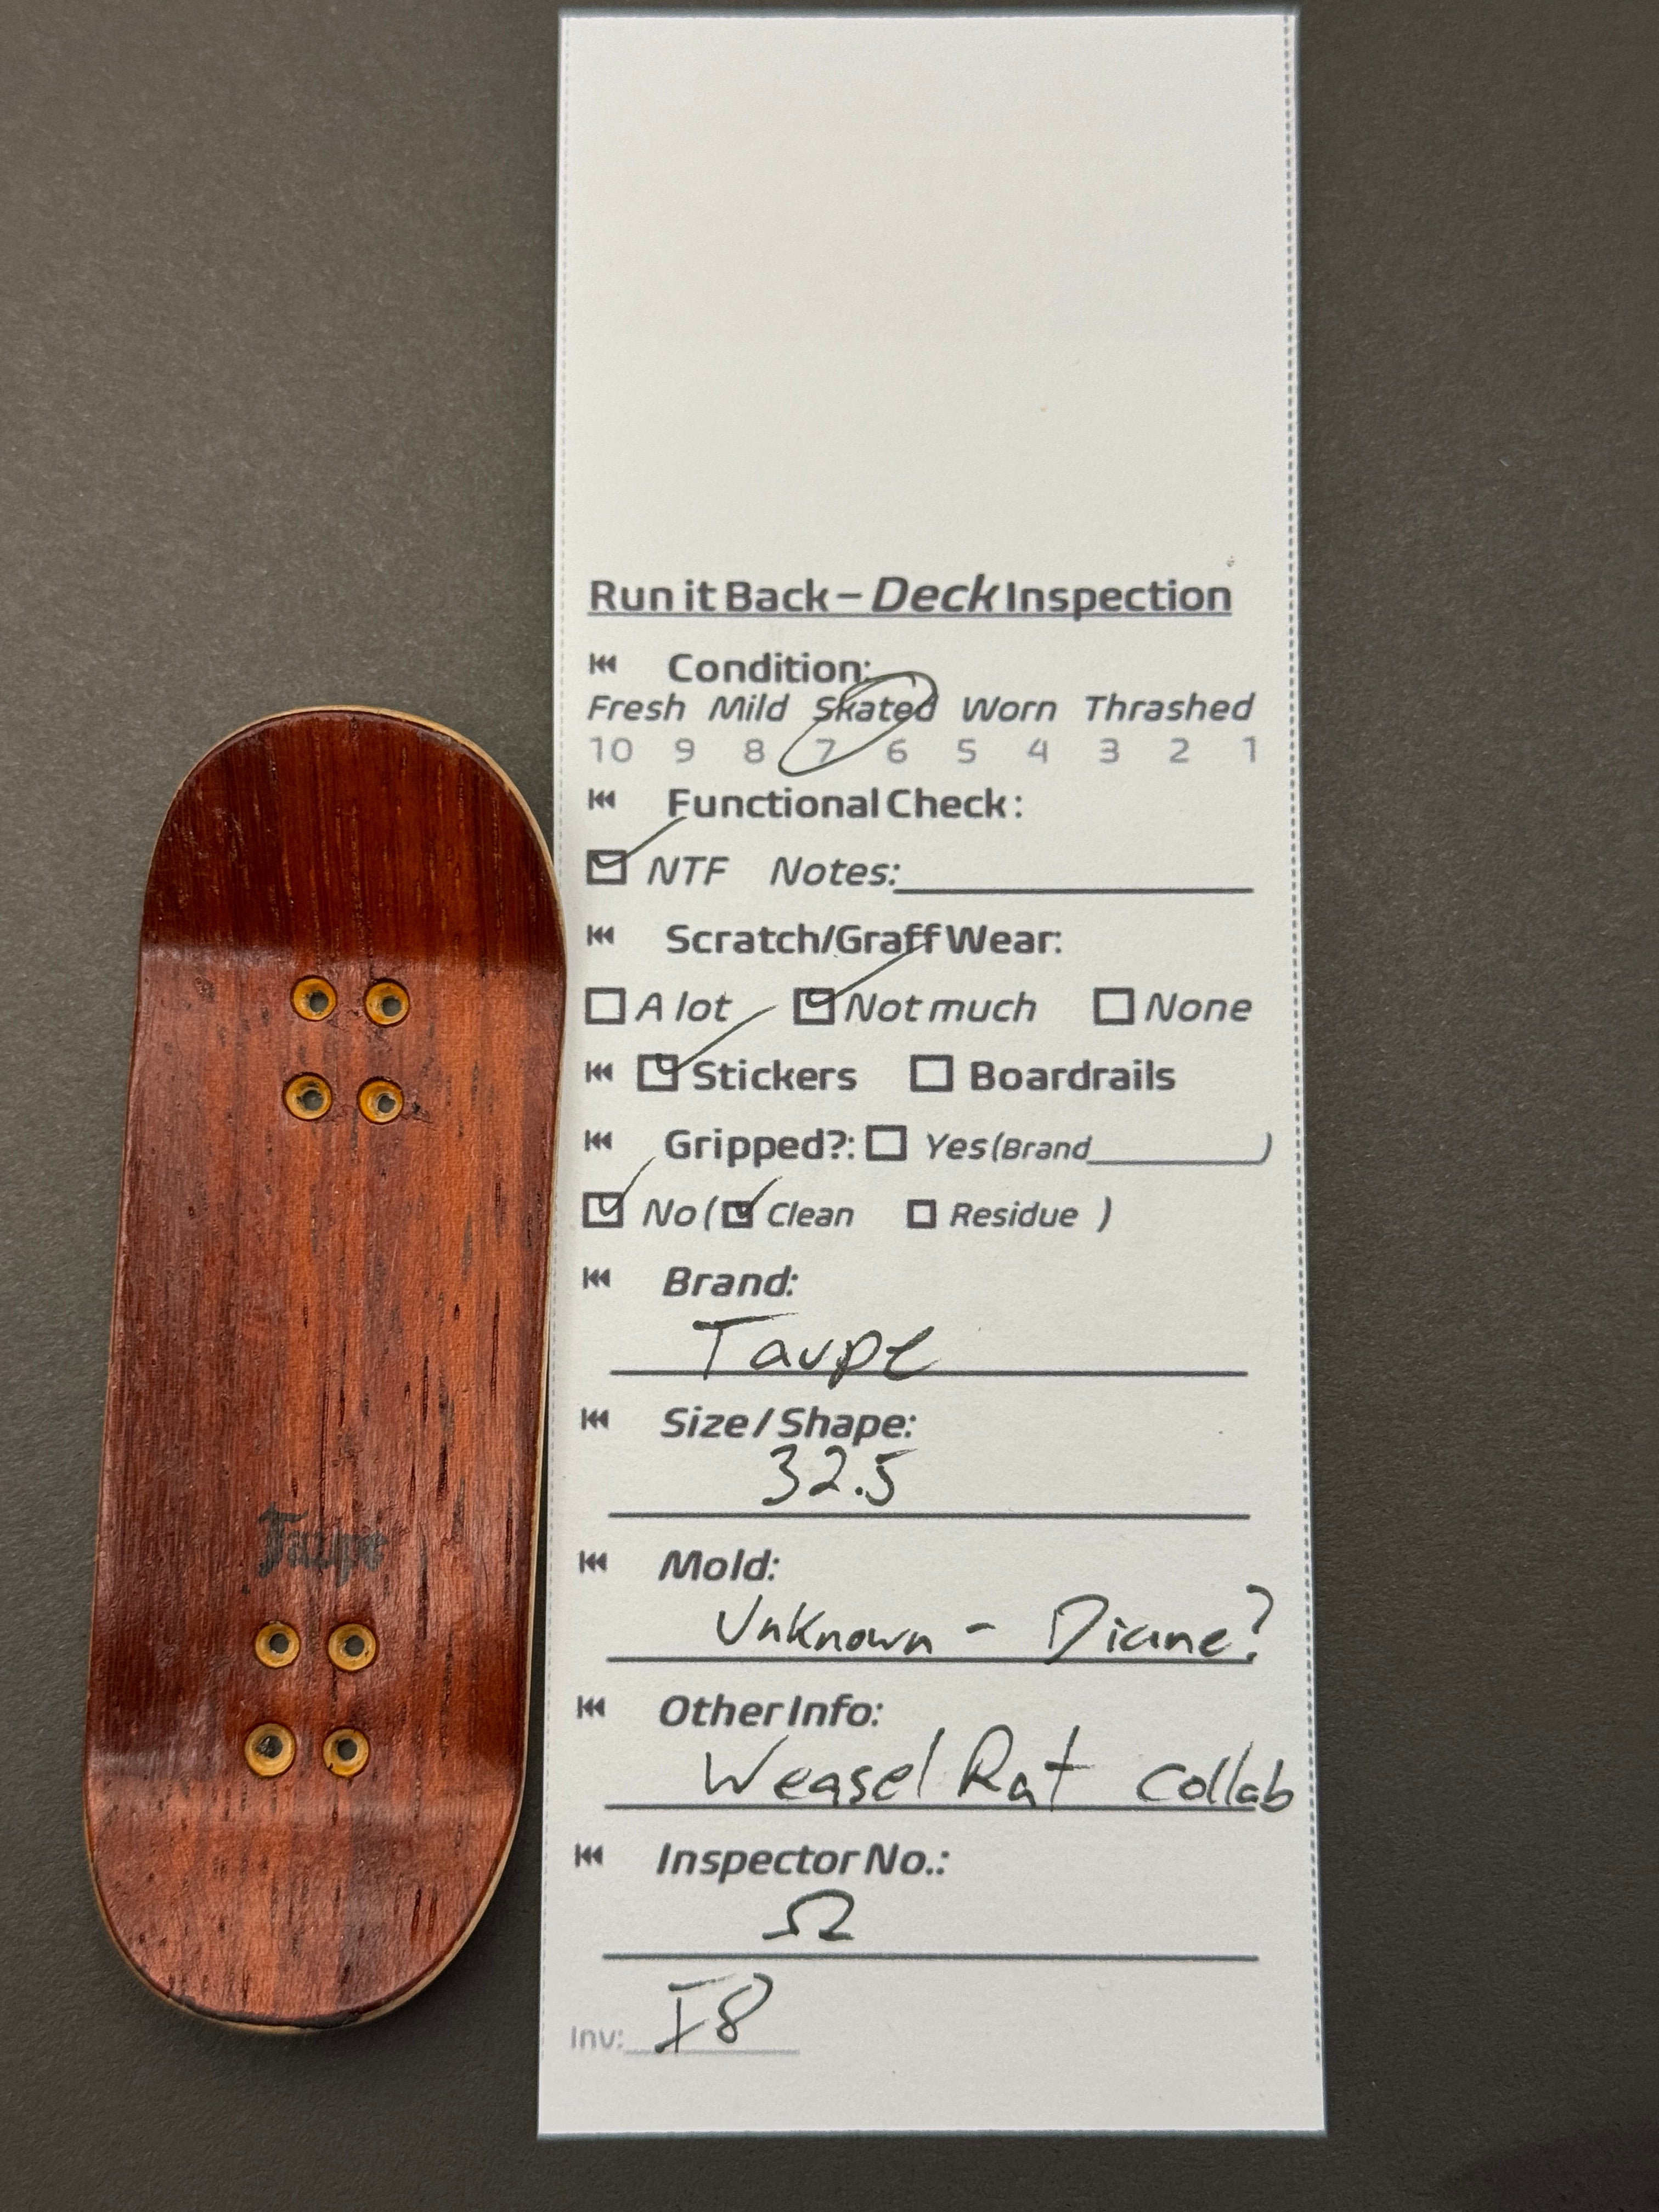 Run it Back – Deck Inspection
Condition:
Fresh Mild Skated Worn Thrashed
10 9 8 7 6 5 4 3 2 1
Functional Check:
NTF Notes:
Scratch/Graff Wear:
A lot Not much None
Stickers Boardrails
Gripped?: Yes (Brand )
No ( Clean Residue )
Brand:
Taupe
Size / Shape:
32.5
Mold:
Unknown - Diane?
Other Info:
Weasel Rat collab
Inspector No.:
Ω
Inv: I8
Taupe